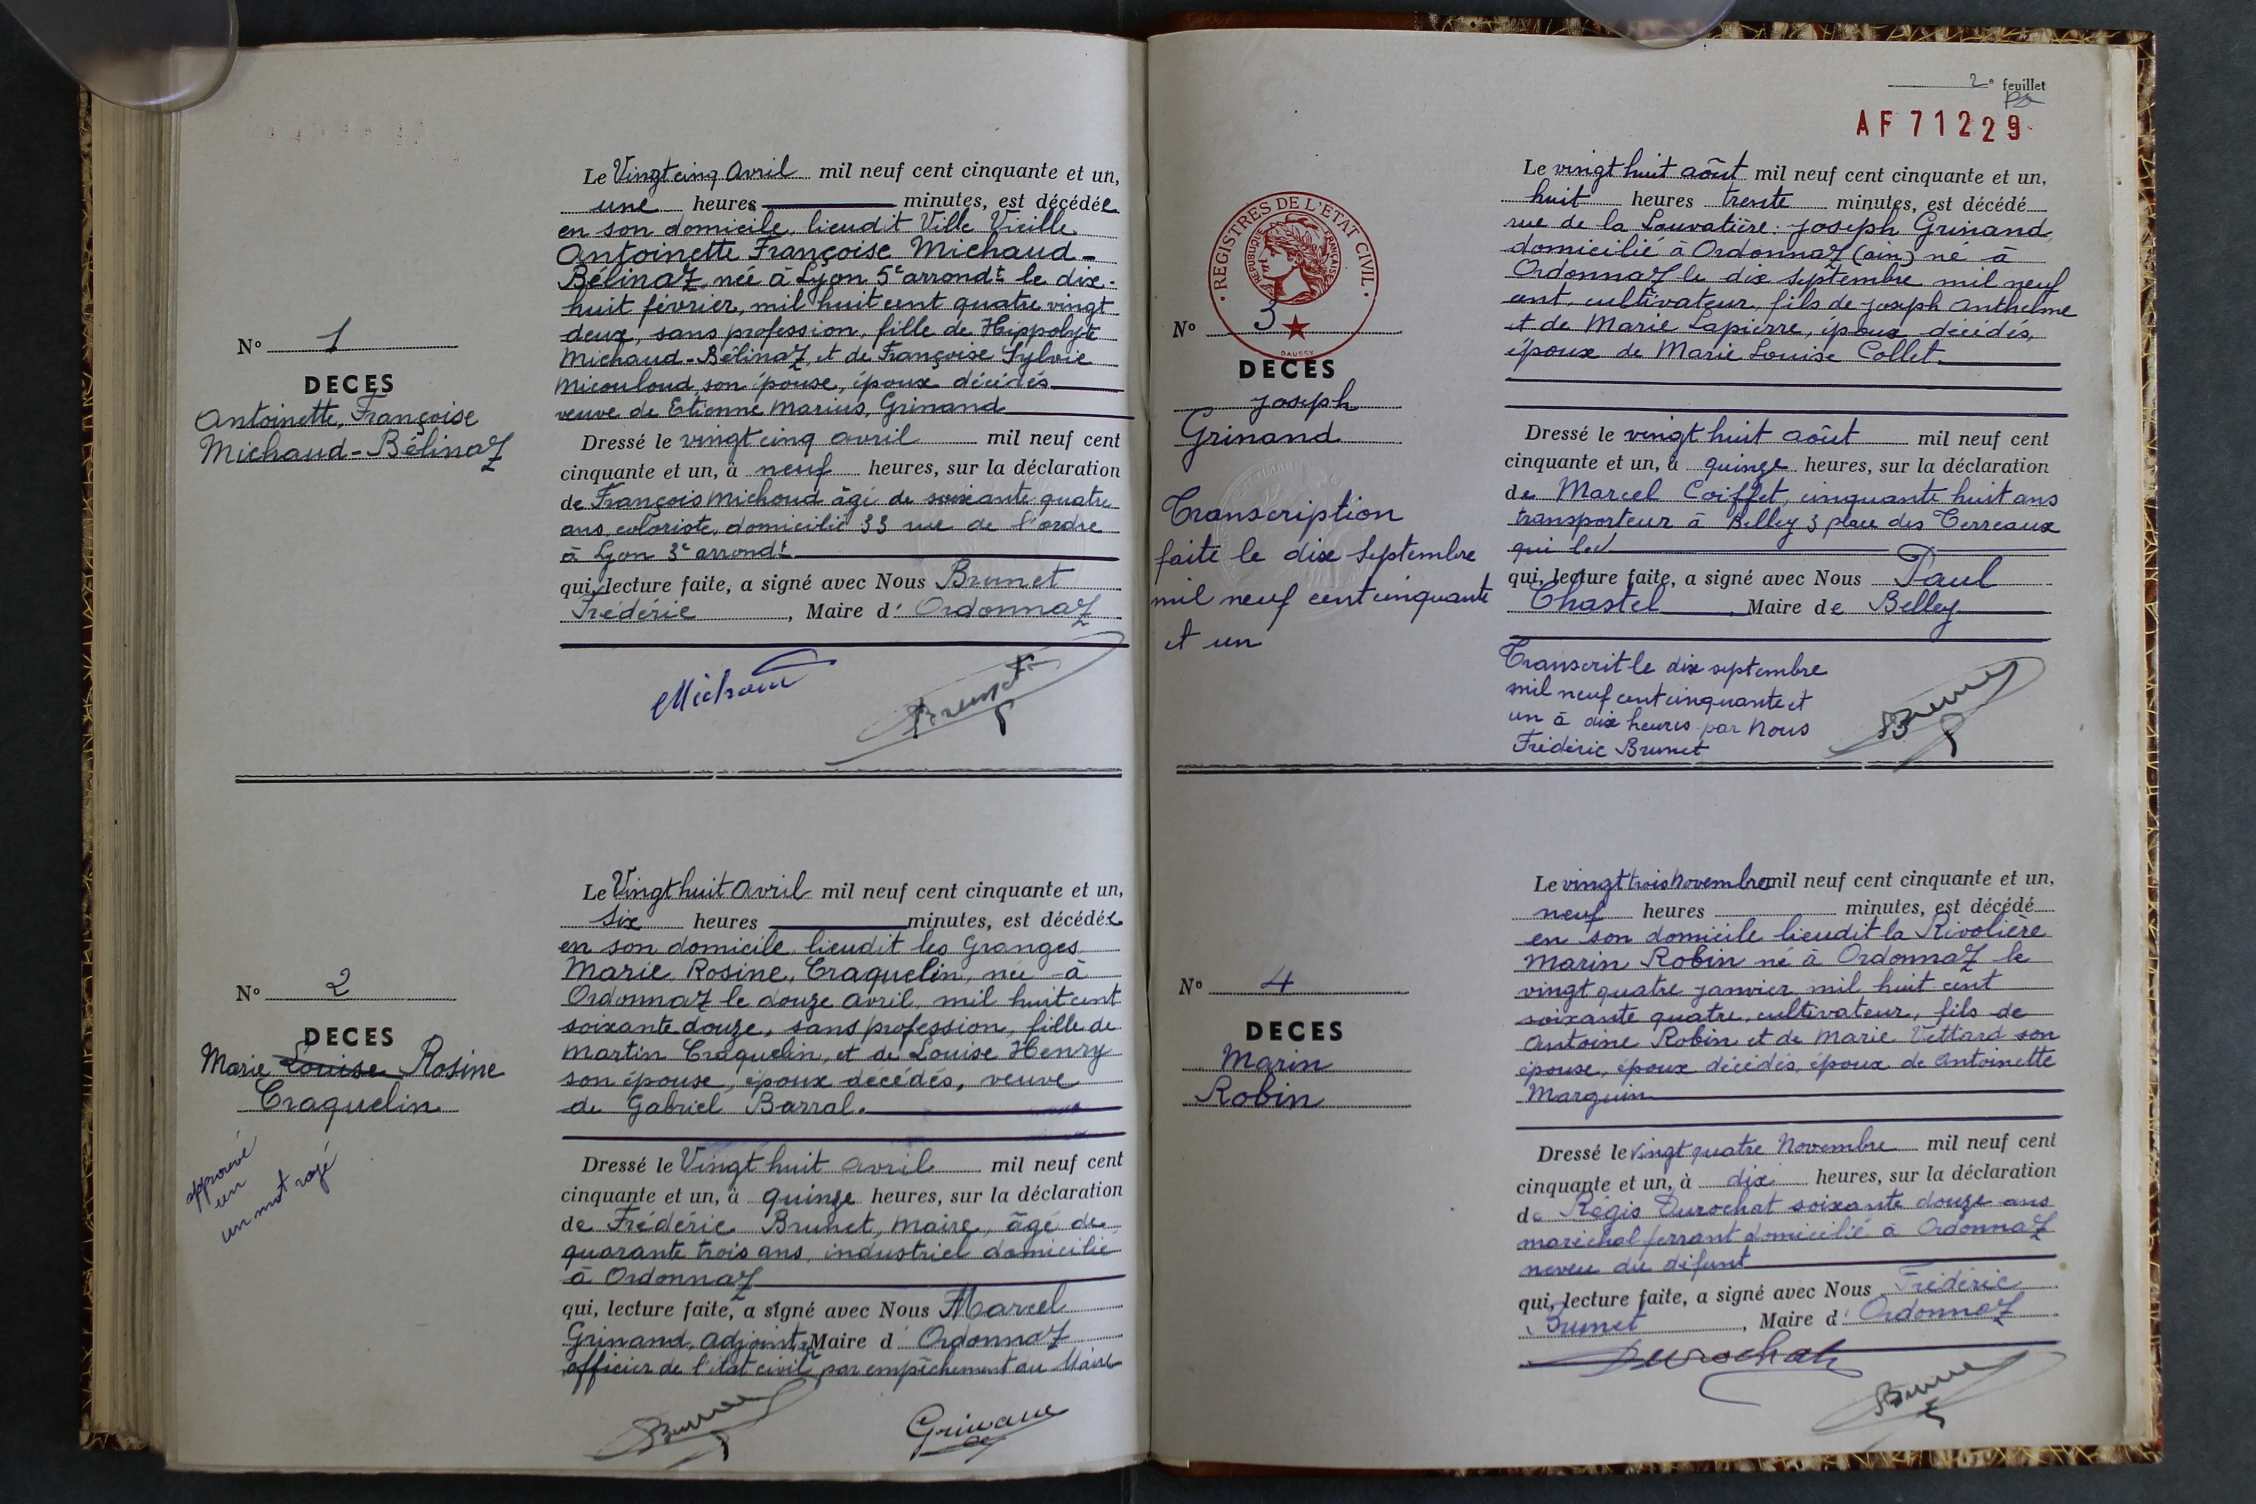 Le Vingt cinq Avril mil neuf cent cinquante et un,
une heures minutes, est décédée
en son domicile, lieudit Ville Vieille
Antoinette Françoise Michaud-
Bélinaz, née à Lyon 5e arrondt le dix-
huit février, mil huit cent quatre vingt
deux, sans profession, fille de Hippolyte
Michaud-Bélinaz, et de Françoise Sylvie
Micouloud, son épouse, époux décédés
veuve de Etienne Marius, Grinand
No 1
DECES
Antoinette, Françoise
Michaud-Bélinaz
Dressé le vingt cinq avril mil neuf cent
cinquante et un, à neuf heures, sur la déclaration
de François Michoud âgé de soixante quatre
ans, coloriste, domicilié 33 rue de l'ordre
à Lyon 3e arrondt
qui, lecture faite, a signé avec Nous Brunet
Frédéric, Maire d' Ordonnaz
Michoud
Brunet
Le Vingt huit Avril mil neuf cent cinquante et un,
six heures minutes, est décédée
en son domicile lieudit les Granges
Marie Rosine, Craquelin, née à
Ordonnaz le douze avril mil huit cent
soixante douze, sans profession, fille de
Martin Craquelin, et de Louise Henry
son épouse, époux décédés, veuve
de Gabriel Barral.
No 2
DECES
Marie Louise Rosine
Craquelin
approuvé
un
un mot rayé
Dressé le Vingt huit avril mil neuf cent
cinquante et un, à quinze heures, sur la déclaration
de Frédéric Brunet, maire, âgé de
quarante trois ans, industriel domicilié
à Ordonnaz
qui, lecture faite, a signé avec Nous Marcel
Grinand, adjoint, Maire d' Ordonnaz
officier de l'état civil par empêchement du Maire
Brunet
Grinand
2e feuillet
AF 71229
REGISTRES DE L'ETAT CIVIL
REPUBLIQUE FRANCAISE
DAUSSY
Le vingt huit août mil neuf cent cinquante et un,
huit heures trente minutes, est décédé
rue de la Louvatière: Joseph Grinand
domicilié à Ordonnaz (ain) né à
Ordonnaz le dix septembre mil neuf
cent, cultivateur, fils de Joseph Anthelme
et de Marie Lapierre, époux décédés,
époux de Marie Louise Collet.
No 3
DECES
Joseph
Grinand
Transcription
faite le dix septembre
mil neuf cent cinquante
et un
Dressé le vingt huit août mil neuf cent
cinquante et un, à quinze heures, sur la déclaration
de Marcel Coiffet, cinquante huit ans
transporteur à Belley 3 place des Terreaux
qui
qui, lecture faite, a signé avec Nous Paul
Chastel Maire de Belley
Transcrit le dix septembre
mil neuf cent cinquante et
un à dix heures par Nous
Frédéric Brunet
Brunet
Le vingt trois Novembre mil neuf cent cinquante et un,
neuf heures minutes, est décédé
en son domicile lieudit la Rivolière
Marin Robin né à Ordonnaz le
vingt quatre janvier mil huit cent
soixante quatre, cultivateur, fils de
Antoine Robin et de Marie Vettard son
épouse, époux décédés, époux de Antoinette
Marguin
No 4
DECES
Marin
Robin
Dressé le Vingt quatre Novembre mil neuf cent
cinquante et un, à dix heures, sur la déclaration
de Régis Durochat soixante douze ans
maréchal ferrant domicilié à Ordonnaz
neveu du défunt
qui, lecture faite, a signé avec Nous Frédéric
Brunet, Maire d' Ordonnaz
Durochat
Brunet